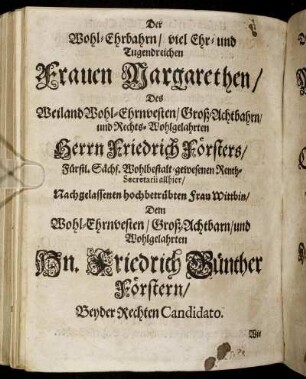 Der
Wohl-Ehrbahrn/ viel Ehr- und
Tugendreichen
Frauen Margarethen/
Des
Weiland Wohl-Ehrnvesten/ Groß-Achtbahrn/
und Rechts-Wohlgelahrten
Herrn Friedrich Försters/
Fürstl. Sächs. Wohlbestalt-gewesenen Renth-
Secretarii allhier/
Nachgelassenen hochbetrübten Frau Wittbin/
Dem
Wohl-Ehrnvesten/ Groß-Achtbarn/und
Wohlgelahrten
Hn. Friedrich Günther
Förstern/
Beyder Rechten Candidato.